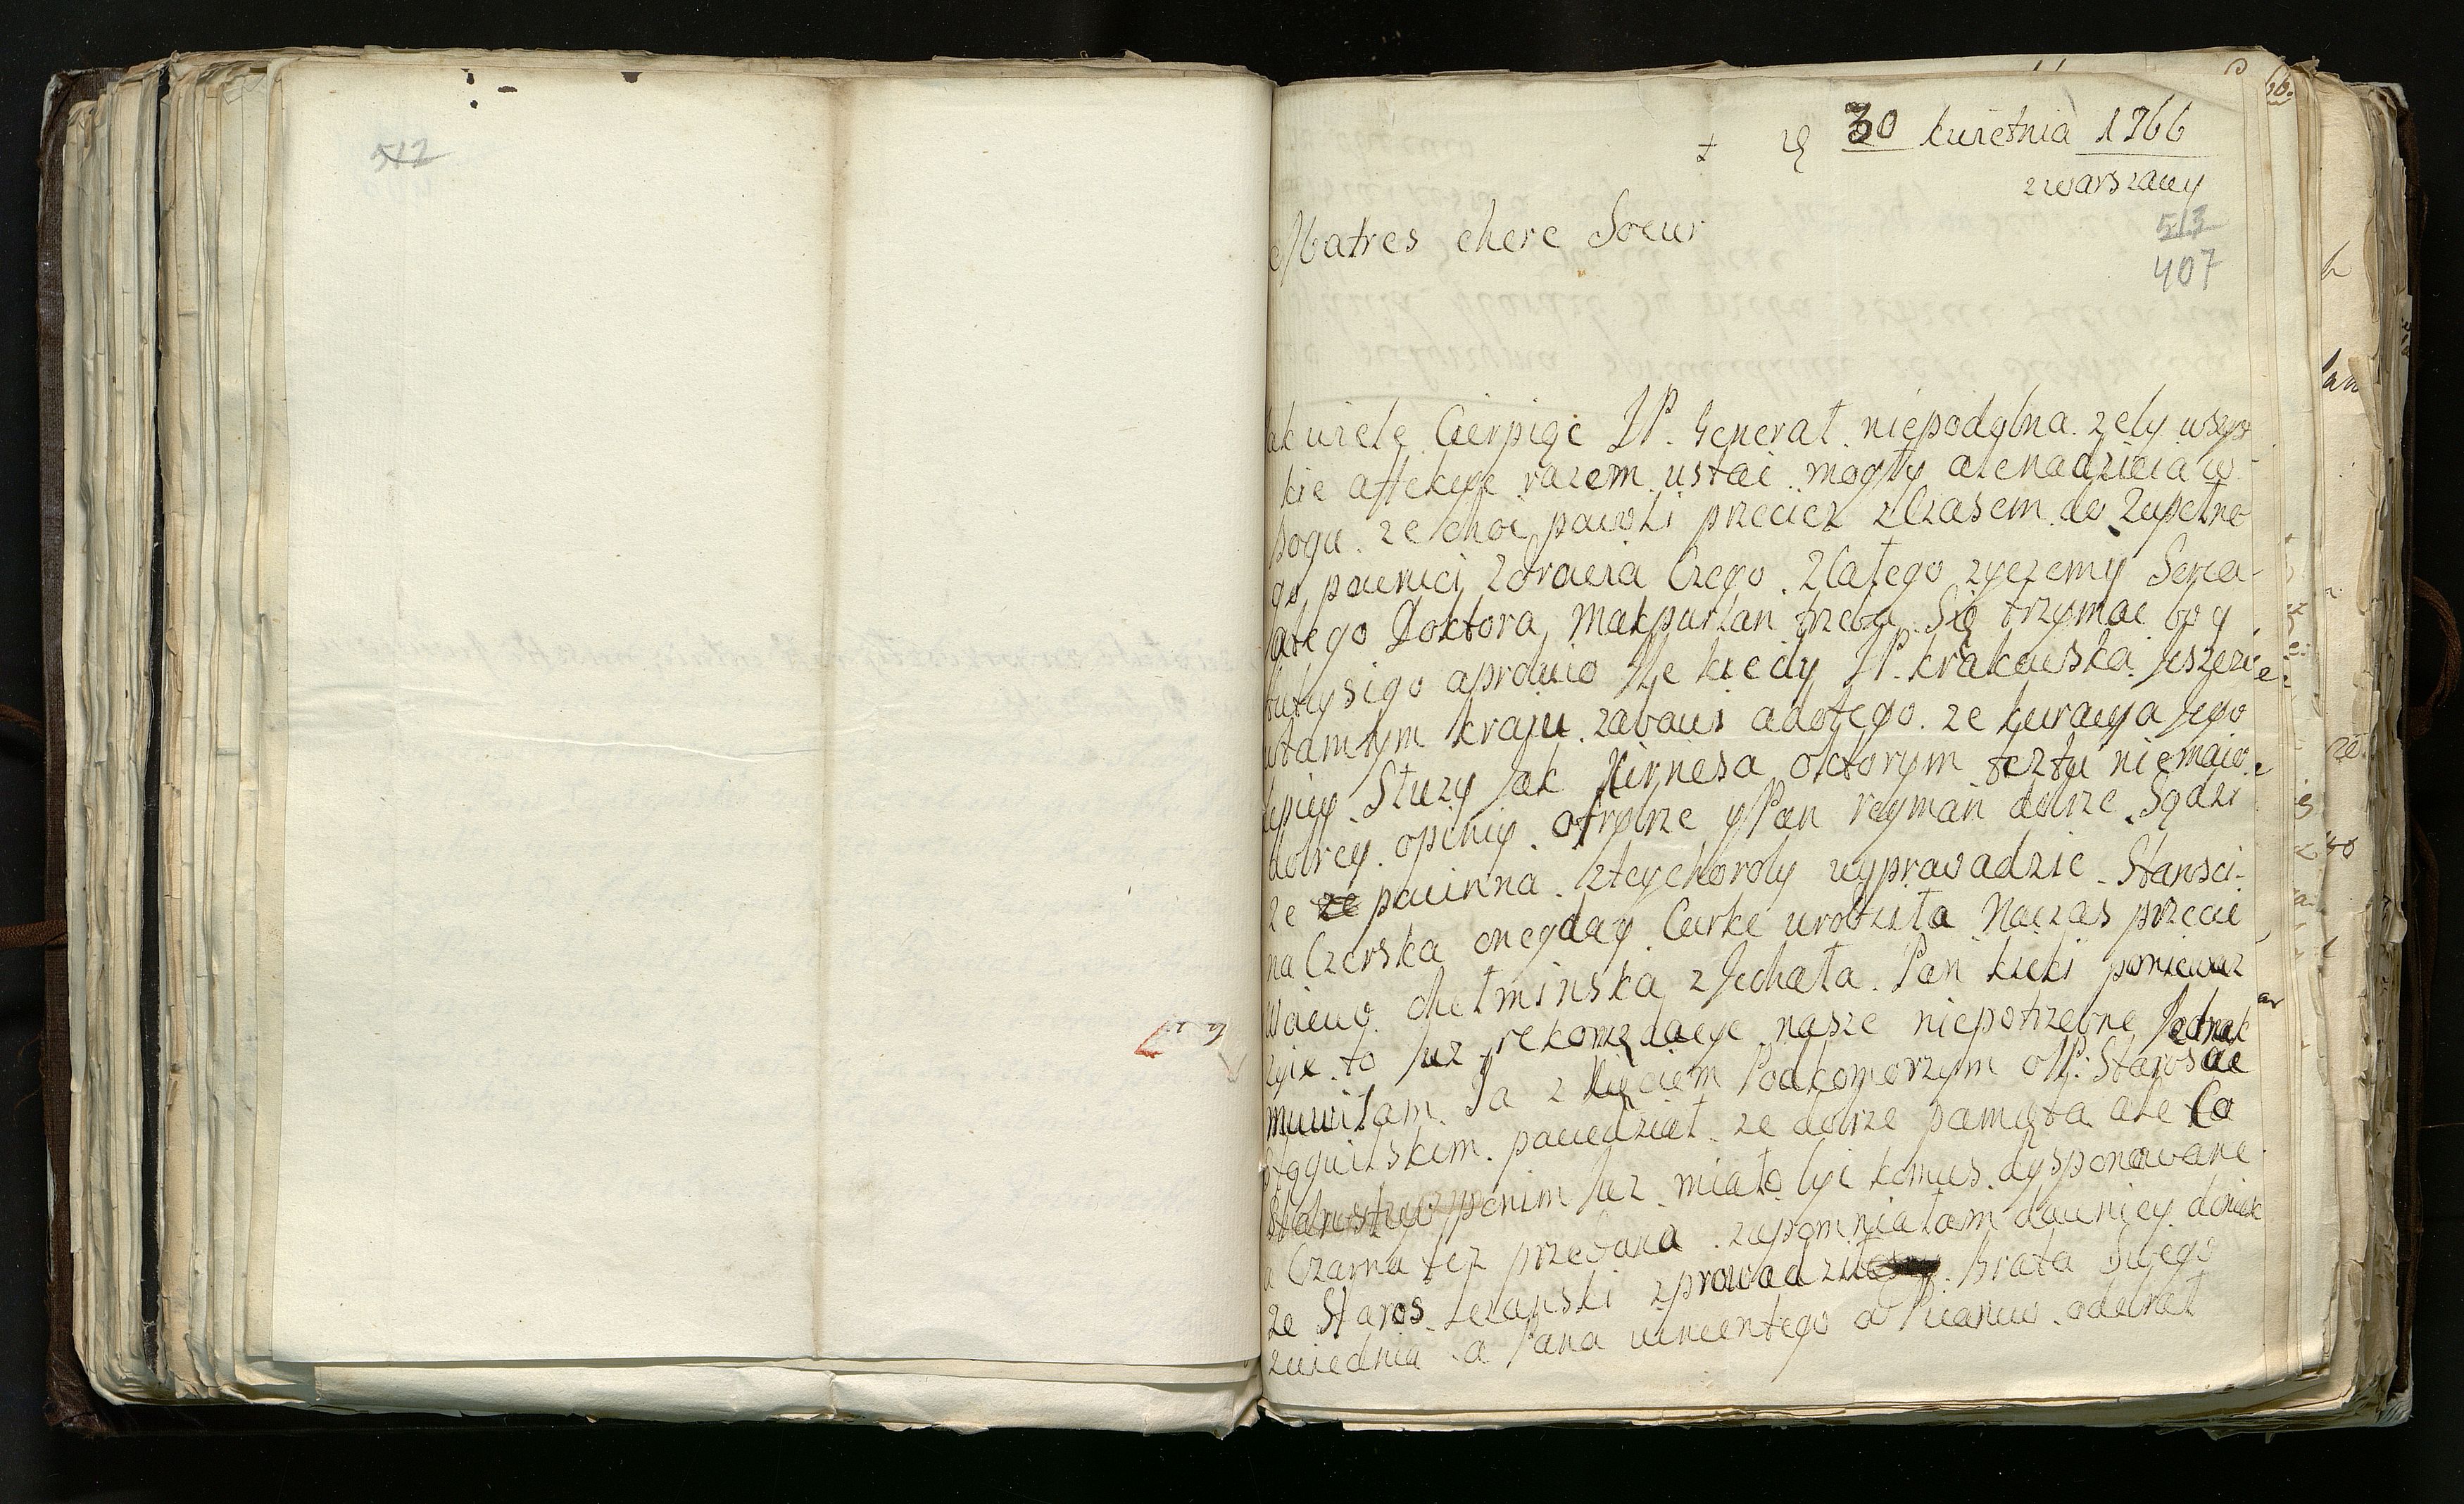 512
30 kwietnia 1766
z warszawy
513
407
Matres chere Soeur
ak wiele Cierpiąc JP. General niepodobna zeby wszyst
kie affekcye razem ustac mogły ale nadzieia w
bogu ze choc powoli przeciez zczasem do zupełne
go powruci zdrowia Czego zcałego zyczemy Serca
Doktora Makpurlan trzeba Się trzymac bo y
kiedy JP. krakowska Jeszcze
wtamtym kraju zabawi adotego ze kuracya Jego
lepiey Słuzy Jak Kirnesa oktorym teztu niemaio
dobrey opiniy y Pan reyman dobrze Sądzi
ze powinna ztey choroby wyprowadzic Starosci
na Czerska onegday Curke urodziła Naczas przecie
chełminska zJechała Pan kicki poniewaz
zyie to Juz rekomendacye nasze niepotrzebne Jednak
muwiłam Ja z Xięciem Podkomorzym o JP. Staroscie
powiedział ze dobrze pamięta ale Co
Starostwo ponim Juz miało byc komus dysponowane
a Czarna tez przedana zapomniałam dawniey doniesc
ze Staros. zprowadził Brata Swego
zwiednia a Pana wincentego a Piaruw odebrał